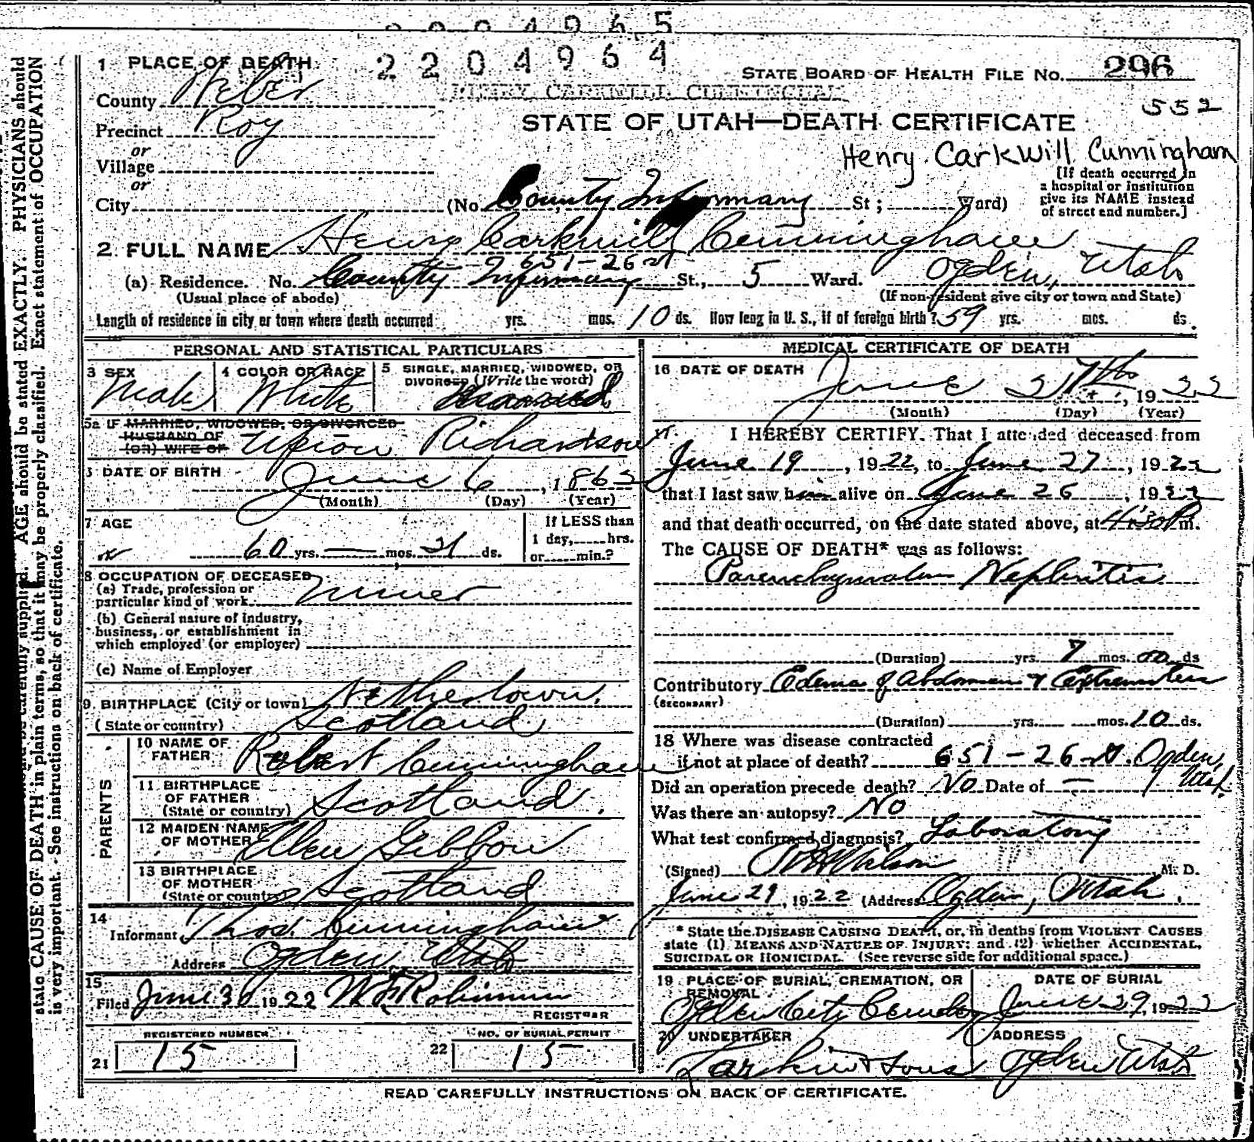 2204965
2204964
1 PLACE OF DEATH
STATE BOARD OF HEALTH FILE No. 296
County Weber
HENRY CARKWILL CUNNINGHAM
552
Precinct Roy
STATE OF UTAH—DEATH CERTIFICATE
or
Village
Henry Carkwill Cunningham
or
City (No County Infirmary St; Ward)
[If death occurred in
a hospital or institution
give its NAME instead
of street and number.]
2. FULL NAME Henry Carkwill Cunningham
651-26 St
(a) Residence. No. County Infirmary St., 5 Ward. Ogden, Utah
(Usual place of abode) (If non-resident give city or town and State)
Length of residence in city or town where death occurred yrs. mos. 10 ds. How long in U. S., if of foreign birth? 59 yrs. mos. ds.
PERSONAL AND STATISTICAL PARTICULARS
3 SEX Male
4 COLOR OR RACE White
5 SINGLE, MARRIED, WIDOWED, OR
DIVORCED (Write the word) Married
5a IF MARRIED, WIDOWED, OR DIVORCED
HUSBAND OF
(OR) WIFE OF Richardson
6 DATE OF BIRTH June 6, 1862
(Month) (Day) (Year)
7 AGE 60 yrs. — mos. 21 ds.
If LESS than
1 day, hrs.
or min.?
8 OCCUPATION OF DECEASED
(a) Trade, profession or
particular kind of work Miner
(b) General nature of industry,
business, or establishment in
which employed (or employer)
(c) Name of Employer
9. BIRTHPLACE (City or town) Nethertown,
(State or country) Scotland
PARENTS
10 NAME OF
FATHER Robert Cunningham
11 BIRTHPLACE
OF FATHER
(State or country) Scotland
12 MAIDEN NAME
OF MOTHER Ellen Gibbon
13 BIRTHPLACE
OF MOTHER
(State or country) Scotland
14
Informant Thos. Cunningham
Address Ogden Utah
15
Filed June 30 1922
REGISTRAR
REGISTERED NUMBER
21 15
NO. OF BURIAL PERMIT
22 15
MEDICAL CERTIFICATE OF DEATH
16 DATE OF DEATH
June 27th, 1922
(Month) (Day) (Year)
17 I HEREBY CERTIFY. That I attended deceased from
June 19, 1922, to June 27, 1922
that I last saw him alive on June 26, 1922
and that death occurred, on the date stated above, at 11:30 P m.
The CAUSE OF DEATH* was as follows:
Parenchymatous Nephritis
(Duration) yrs. 7 mos. 00 ds
Contributory Edema of Abdomen & Extremities
(SECONDARY)
(Duration) yrs. mos. 10 ds.
18 Where was disease contracted
if not at place of death? 651-26 St. Ogden, Utah.
Did an operation precede death? No Date of —
Was there an autopsy? No
What test confirmed diagnosis? Laboratory
(Signed) Wilson M. D.
June 29, 1922 (Address Ogden, Utah.
* State the DISEASE CAUSING DEATH, or, in deaths from VIOLENT CAUSES
state (1) MEANS AND NATURE OF INJURY; and (2) whether ACCIDENTAL,
SUICIDAL OR HOMICIDAL. (See reverse side for additional space.)
19 PLACE OF BURIAL, CREMATION, OR
REMOVAL
Ogden City Cemetery
DATE OF BURIAL
June 29, 1922
20 UNDERTAKER
Larkin & Sons
ADDRESS
Ogden Utah
READ CAREFULLY INSTRUCTIONS ON BACK OF CERTIFICATE.
AGE should be stated EXACTLY. PHYSICIANS should
state CAUSE OF DEATH in plain terms, so that it may be properly classified. Exact statement of OCCUPATION
is very important. See instructions on back of certificate.